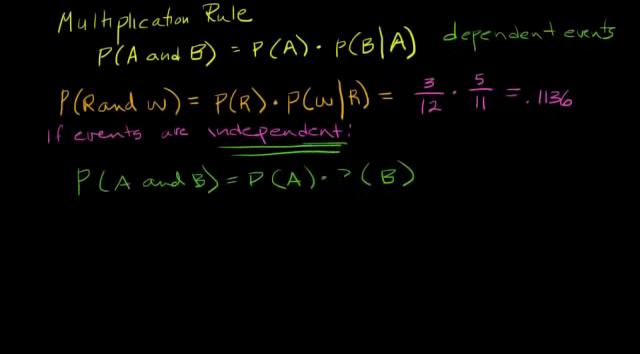 Multiplication Rule
P(A and B) = P(A) · P(B|A) dependent events
P(R and W) = P(R) · P(W|R) = 3/12 · 5/11 = .1136
If events are independent:
P(A and B) = P(A) · (B)